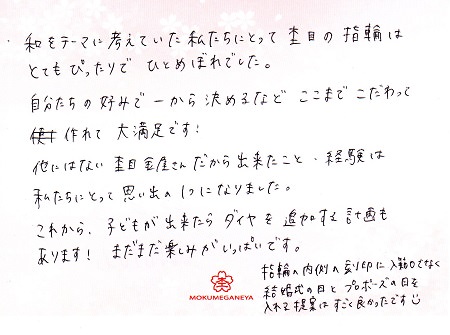 ・和をテーマに考えていた私たちにとって 杢目の指輪は
とてもぴったりで ひとめぼれでした。
自分たちの好みで一から決めるなど ここまでこだわって
作れて 大満足です!
他にはない 杢目金屋さんだから出来たこと・経験は
私たちにとって 思い出の1つになりました。
これから、子どもが出来たら ダイヤを追加する計画も
あります! まだまだ楽しみがいっぱいです。
指輪の内側の刻印に入籍日でなく
結婚式の日とプロポーズの日を
入れる提案はすごく良かったです
MOKUMEGANEYA